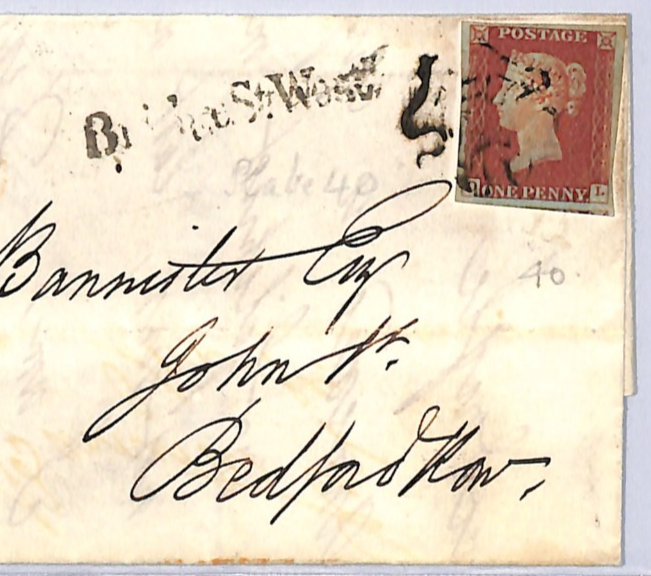 POSTAGE
ONE PENNY.
L
St West
Plate 40
40
Bannister Esq
John St.
Bedford Row.